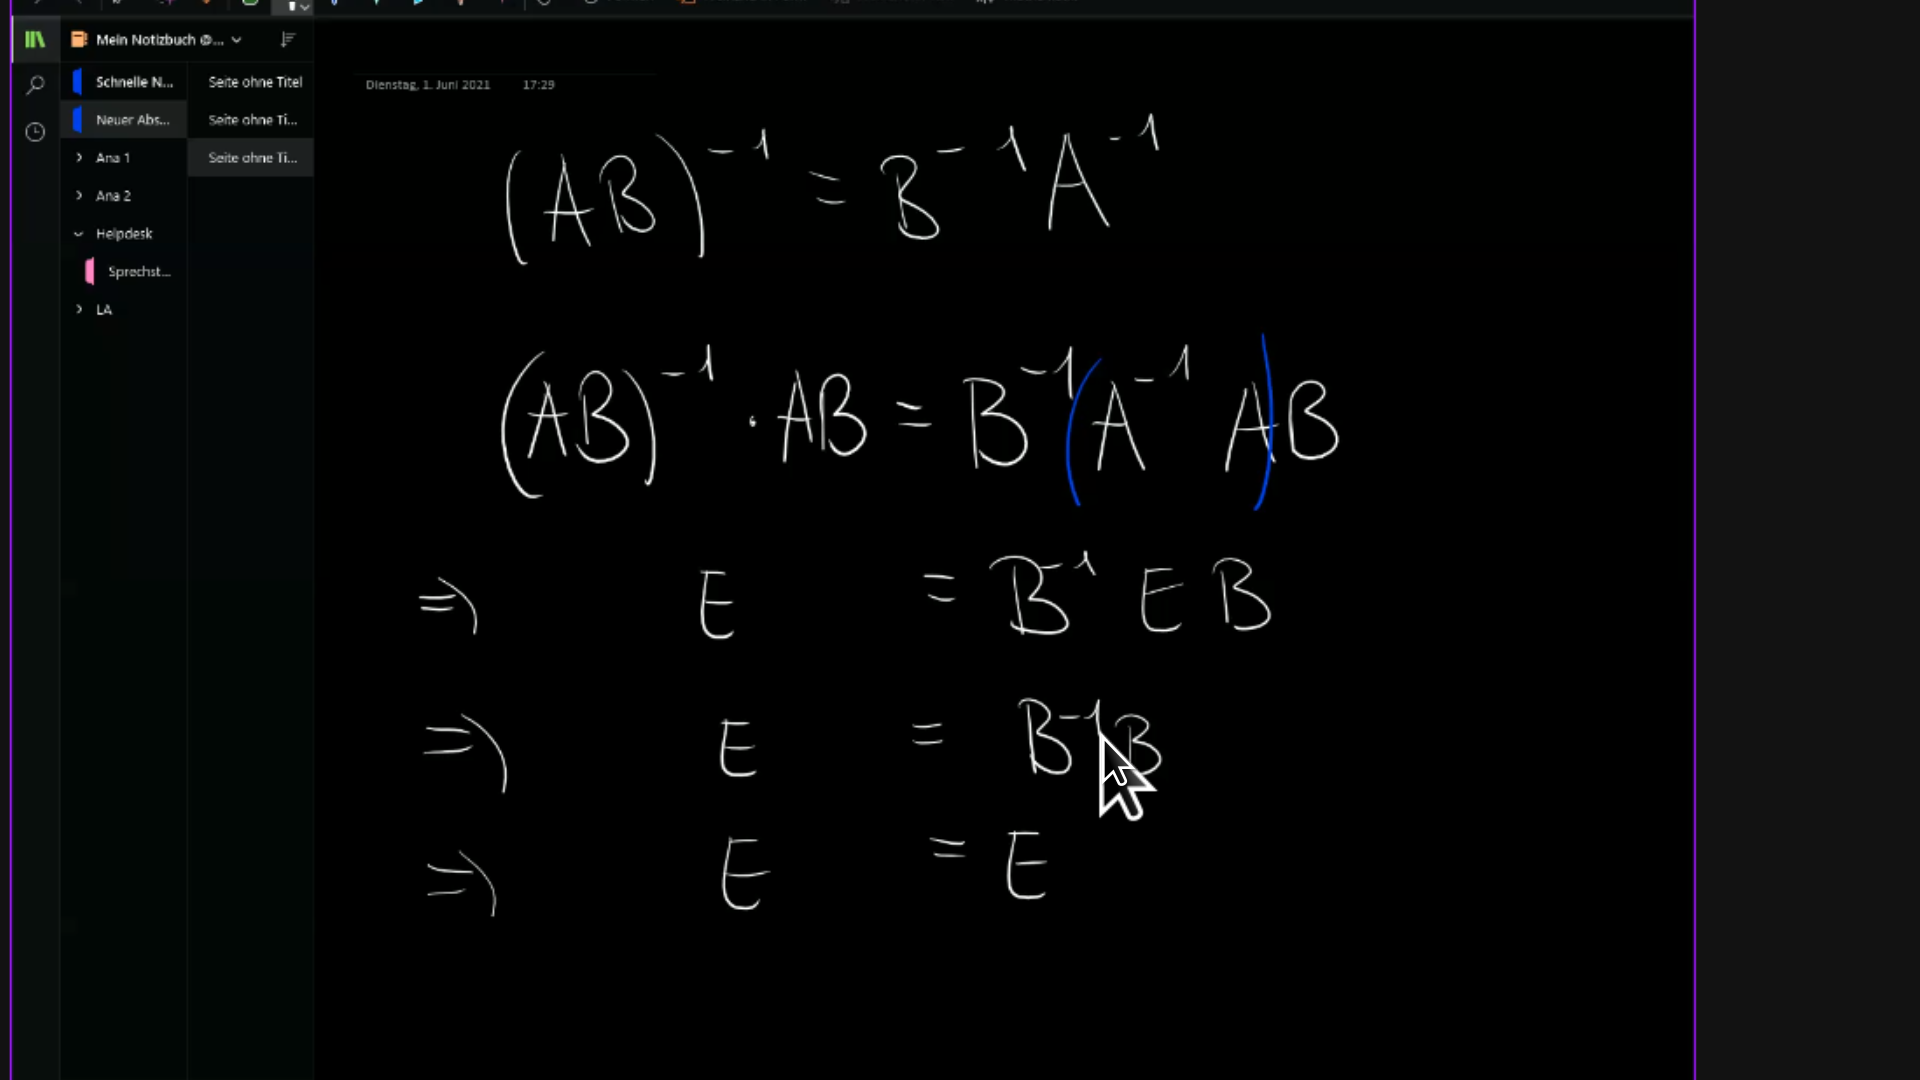 Mein Notizbuch @...
Schnelle N...
Neuer Abs...
Ana 1
Ana 2
Helpdesk
Sprechst...
LA
Seite ohne Titel
Seite ohne Ti...
Seite ohne Ti...
Dienstag, 1. Juni 2021 17:29
(AB)⁻¹ = B⁻¹A⁻¹
(AB)⁻¹ · AB = B⁻¹(A⁻¹ A)B
⇒ E = B⁻¹ E B
⇒ E = B⁻¹B
⇒ E = E